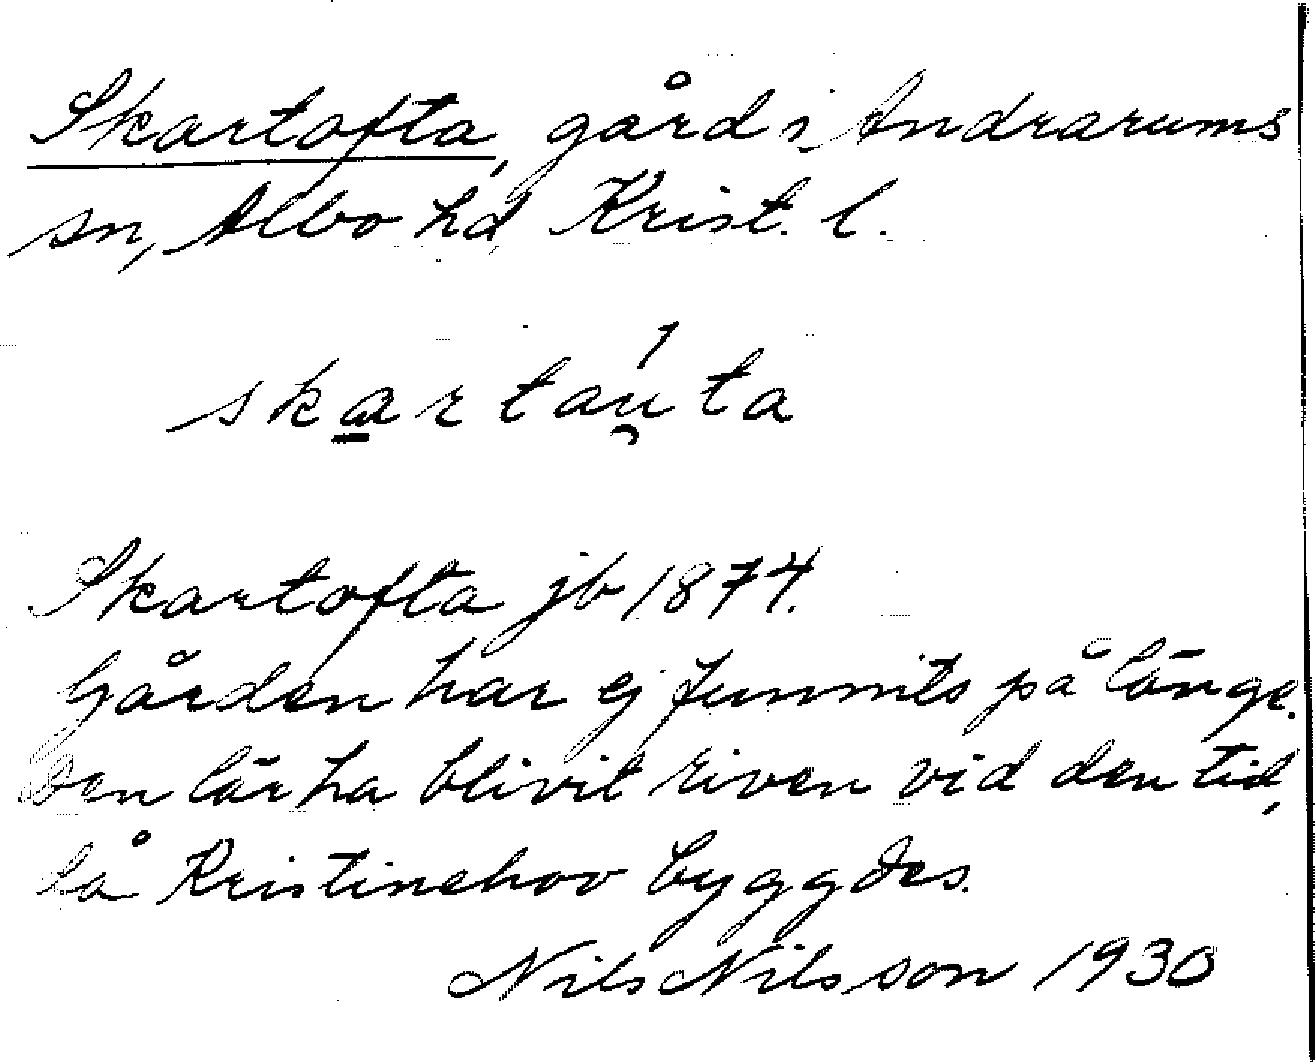 Skartofta, gård i Andrarums
sn, Albo hd Krist. l.
skartau̯´ta
Skartofta jb 1874.
Gården har ej funnits på länge.
Den lär ha blivit riven vid den tid,
då Kristinehov byggdes.
Nils Nilsson 1930